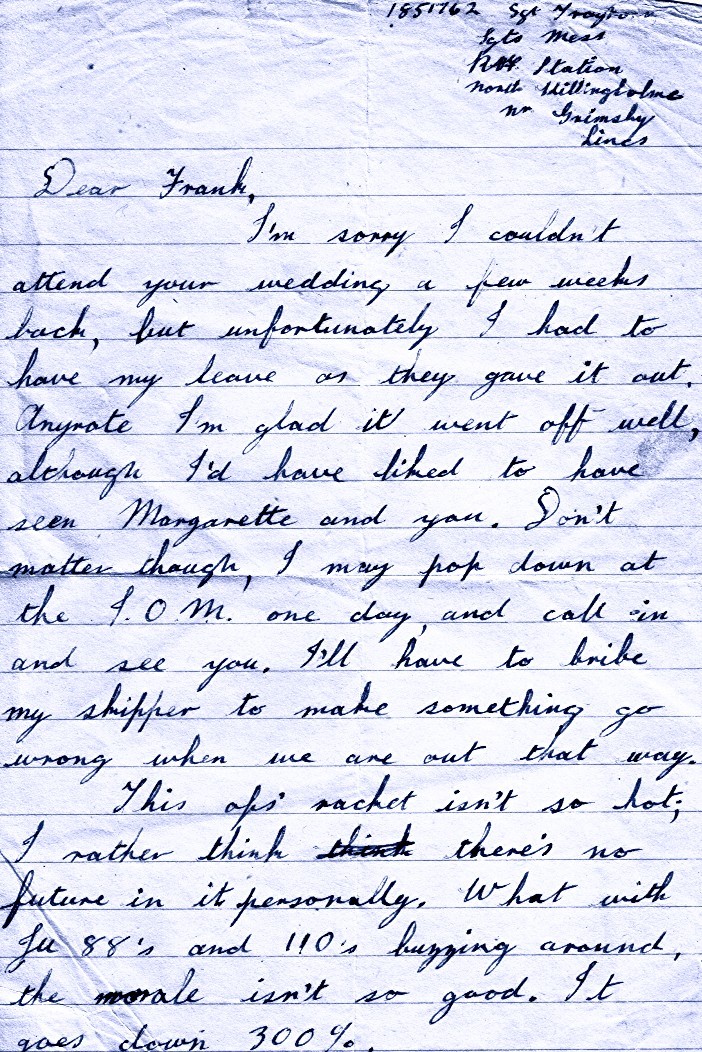 1851762 Sgt
Sgts Mess
RAF Station
North Killingholme
nr Grimsby
Lincs
Dear Frank,
I'm sorry I couldn't
attend your wedding a few weeks
back, but unfortunately I had to
have my leave as they gave it out.
Anyrate I'm glad it went off well,
although I'd have liked to have
seen Margarette and you. Don't
matter though, I may pop down at
the I.O.M. one day, and call in
and see you. I'll have to bribe
my skipper to make something go
wrong when we are out that way.
This ops' racket isn't so hot;
I rather think think there's no
future in it personally. What with
Ju 88's and 110's buzzing around,
the morale isn't so good. It
goes down 300%.